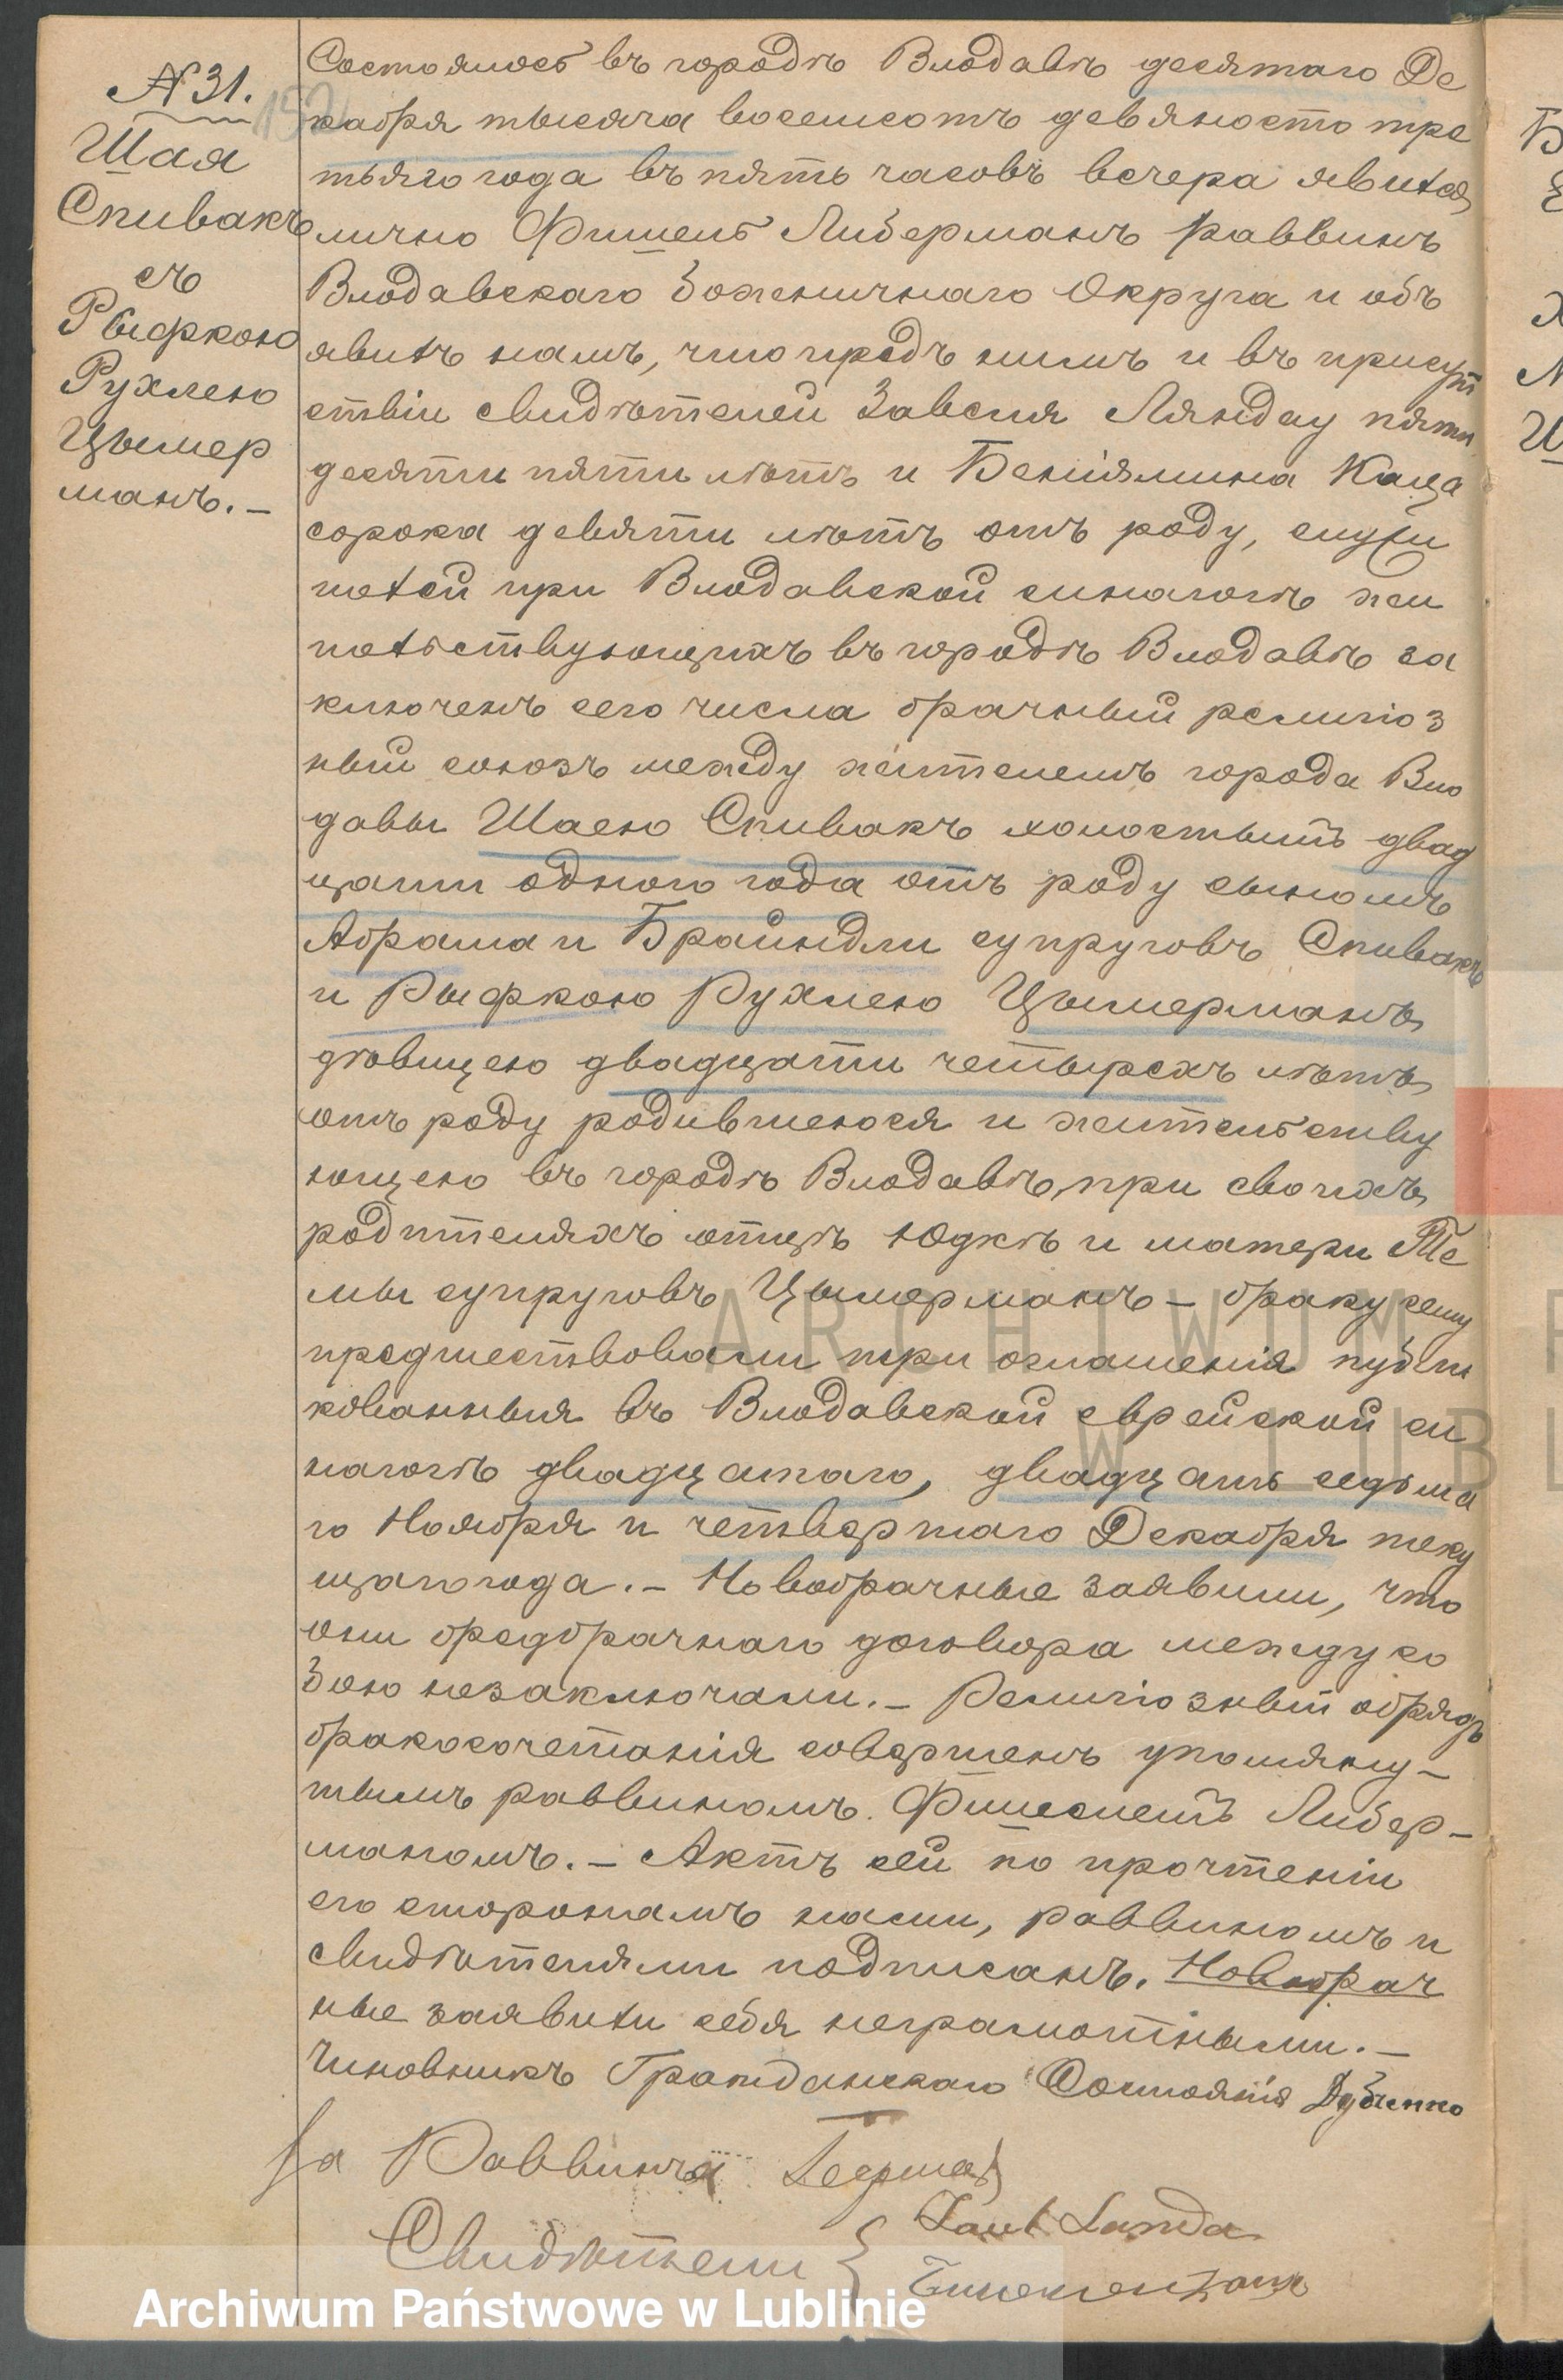 № 31.
Шая
Спивакъ
съ
Рыфкою
Рухлею
Цымер
манъ.–
Состоялось въ городѣ Влодавѣ десятаго Де
кабря тысяча восемсотъ девяносто тре
тьяго года въ пять часовъ вечера явился
лично Фишель Либерманъ раввинъ
Влодавскаго Боженичнаго Округа и объ
явилъ намъ, что предъ нимъ и въ присут
ствіи свидѣтелей Завеля Ляндау пяти
десяти пяти лѣтъ и Беніямина Каца
сорока девяти лѣтъ отъ роду, служи
телей при Влодавской синагогѣ жи
тельствующихъ въ городѣ Влодавѣ за
ключенъ сего числа брачный религіоз
ный союзъ между жителемъ города Вло
давы Шаею Спивакъ холостымъ двад
цати одного года отъ роду сыномъ
Абрама и Брайндли супруговъ Спивакъ
и Рыфкою Рухлею Цымерманъ
дѣвицею двадцати четырехъ лѣтъ
отъ роду родившеюся и жительству
ющею въ городѣ Влодавѣ, при своихъ
родителяхъ отцѣ Юдкѣ и матери Те
мы супруговъ Цымерманъ – браку сему
предшествовали три оглашенія публи
кованныя въ Влодавской еврейской си
нагогѣ двадцатаго, двадцать седьма
го Ноября и четвертаго Декабря теку
щаго года.– Новобрачные заявили, что
они предбрачнаго договора между со
бою незаключали.– Религіозный обрядъ
бракосочетанія совершенъ упомяну–
тымъ раввиномъ Фишелемъ Либер–
маномъ.– Актъ сей по прочтеніи
его сторонамъ нами, раввиномъ и
свидѣтелями подписанъ. Новобрач
ные заявили себя неграмотными.–
Чиновникъ Гражданскаго Состоянія
За Раввина
Свидѣтели {
Landa
ARCHIWUM P
W LUBL
Archiwum Państwowe w Lublinie